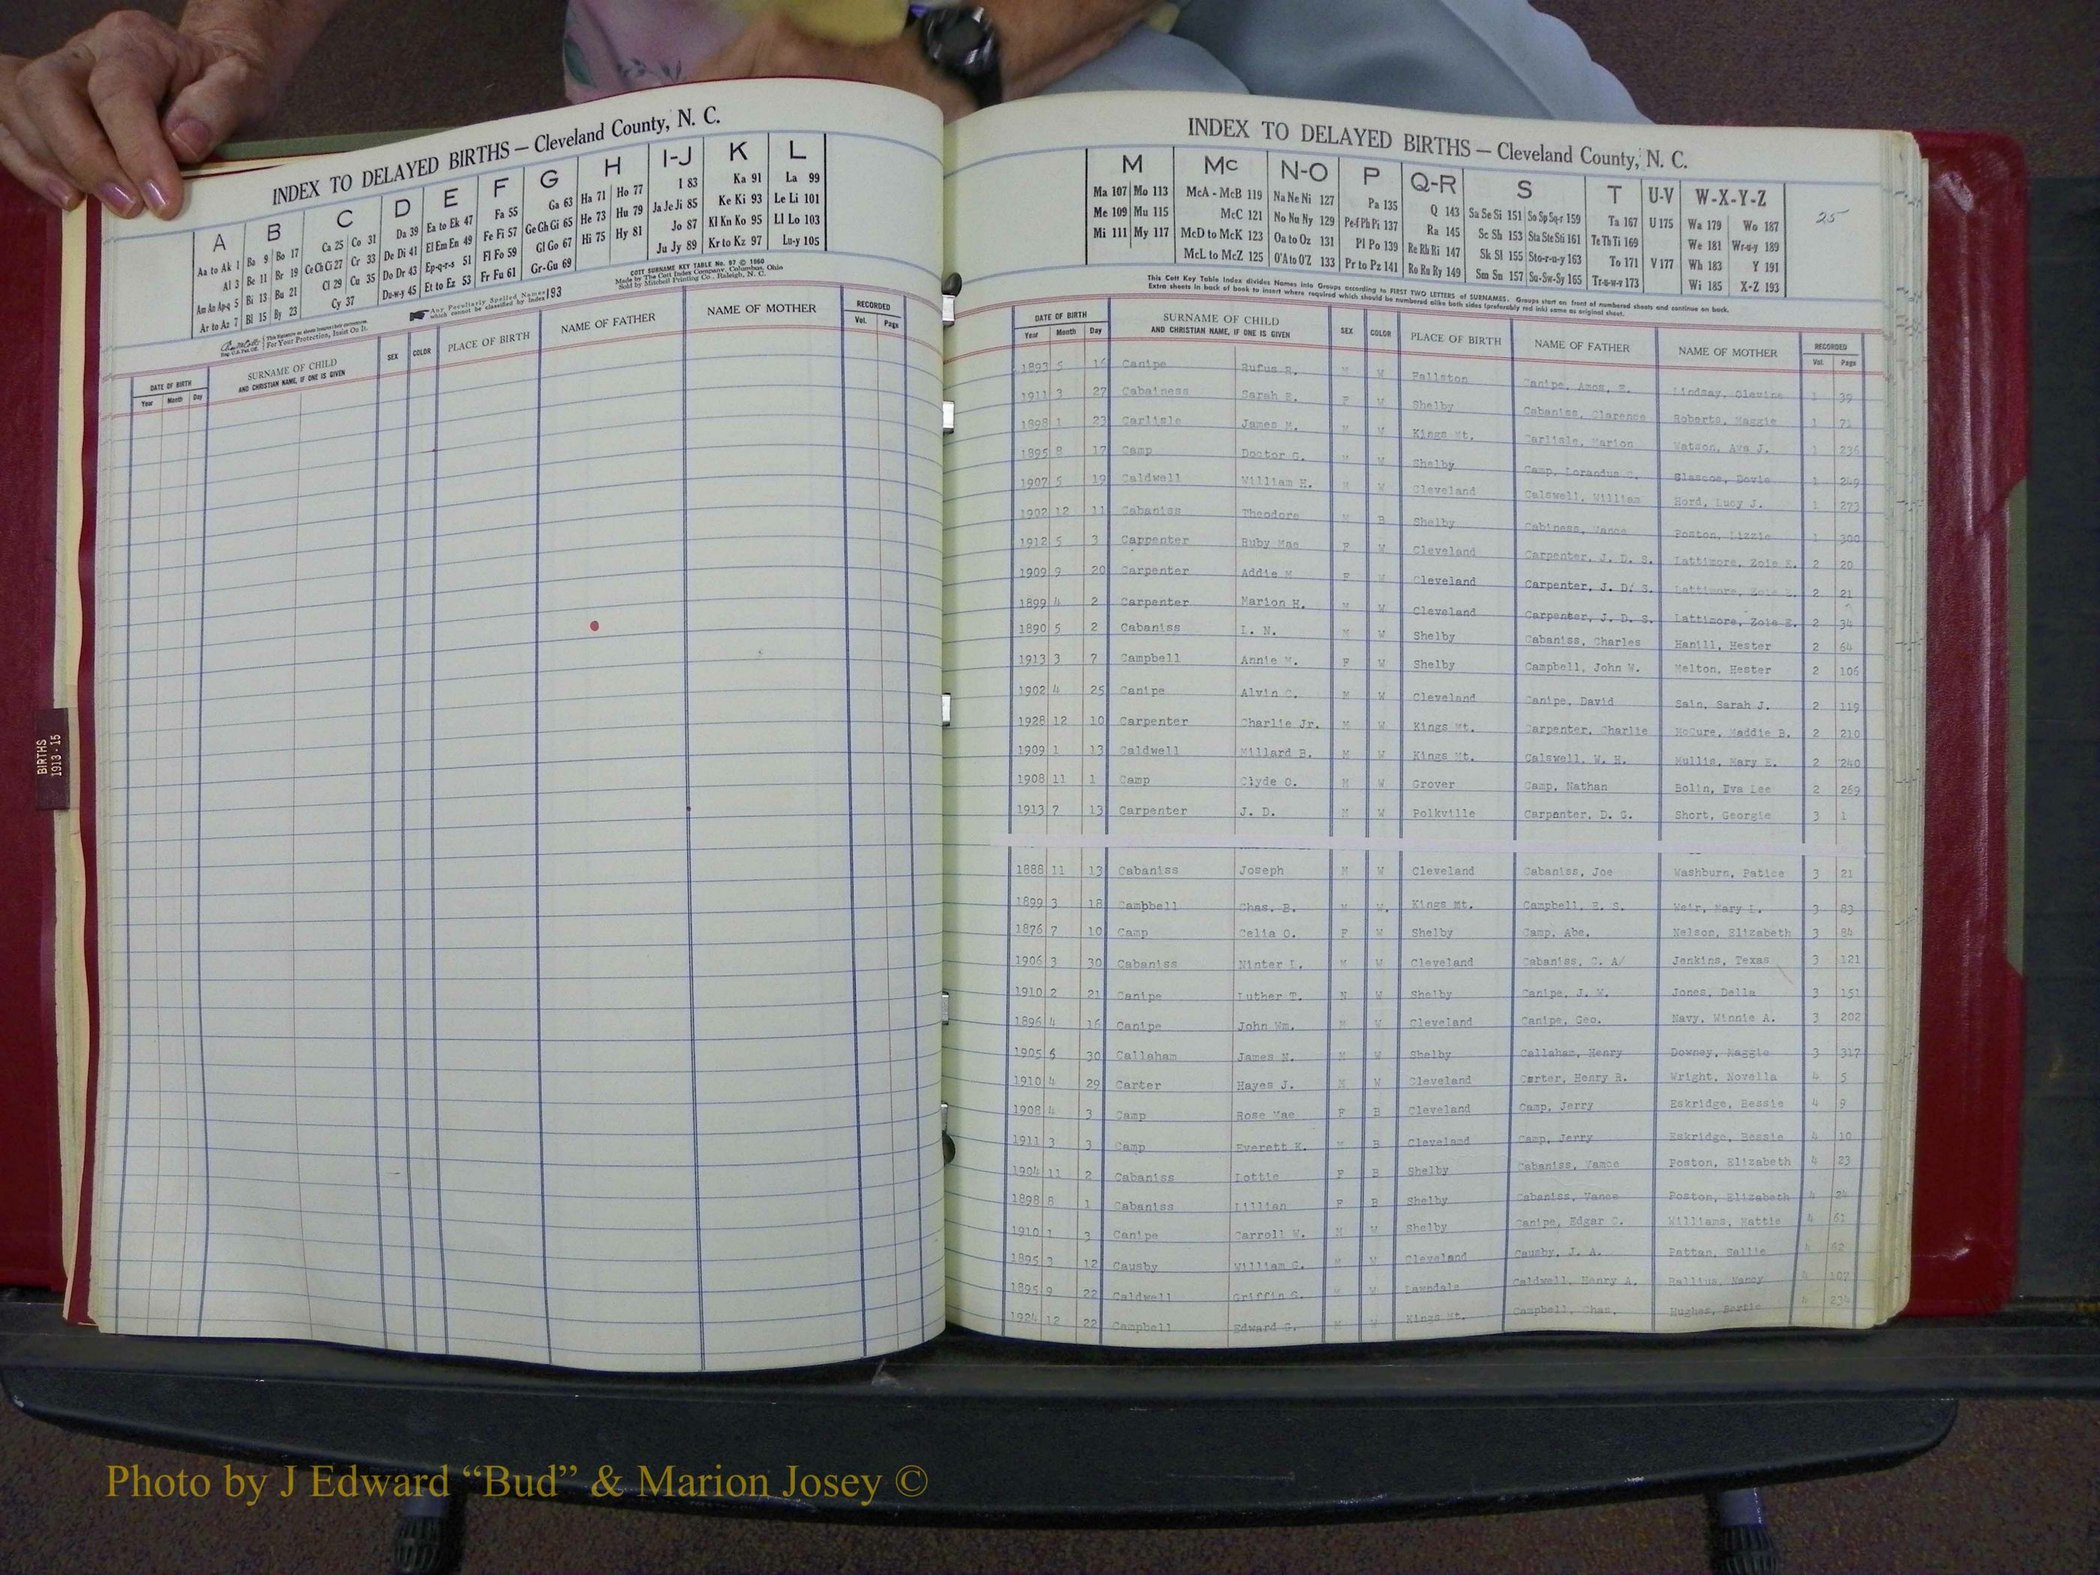 INDEX TO DELAYED BIRTHS — Cleveland County, N. C.
A B C D E F G H I-J K L
Aa to Ak 1 Ba 9 Bo 17 Ca 25 Co 31 Da 39 Ea to Ek 47 Fa 55 Ga 63 Ha 71 Ho 77 I 83 Ka 91 La 99
Al 3 Be 11 Br 19 Ce Ch Ci 27 Cr 33 De Di 41 El Em En 49 Fe Fi 57 Ge Gh Gi 65 He 73 Hu 79 Ja Je Ji 85 Ke Ki 93 Le Li 101
Am An Ap-q 5 Bi 13 Bu 21 Cl 29 Cu 35 Do Dr 43 Ep-q-r-s 51 Fl Fo 59 Gl Go 67 Hi 75 Hy 81 Jo 87 Kl Kn Ko 95 Ll Lo 103
Ar to Az 7 Bl 15 By 23 Cy 37 Du-w-y 45 Et to Ez 53 Fr Fu 61 Gr-Gu 69 Ju Jy 89 Kr to Kz 97 Lu-y 105
For Your Protection, Insist On It.
Any Peculiarly Spelled Names which cannot be classified by Index 193
COTT SURNAME KEY TABLE No. 97 © 1960
Made by The Cott Index Company, Columbus, Ohio
Sold by Mitchell Printing Co., Raleigh, N. C.
DATE OF BIRTH SURNAME OF CHILD SEX COLOR PLACE OF BIRTH NAME OF FATHER NAME OF MOTHER RECORDED
Year Month Day AND CHRISTIAN NAME, IF ONE IS GIVEN Vol. Page
BIRTHS
1913-15
INDEX TO DELAYED BIRTHS — Cleveland County, N. C.
M Mc N-O P Q-R S T U-V W-X-Y-Z
25
Ma 107 Mo 113 McA - McB 119 Na Ne Ni 127 Pa 135 Q 143 Sa Se Si 151 So Sp Sq-r 159 Ta 167 U 175 Wa 179 Wo 187
Me 109 Mu 115 McC 121 No Nu Ny 129 Pe-f Ph Pi 137 Ra 145 Sc Sh 153 Sta Ste Sti 161 Te Th Ti 169 We 181 Wr-u-y 189
Mi 111 My 117 McD to McK 123 Oa to Oz 131 Pl Po 139 Re Rh Ri 147 Sk Sl 155 Sto-r-u-y 163 To 171 V 177 Wh 183 Y 191
McL to McZ 125 O'A to O'Z 133 Pr to Pz 141 Ro Ru Ry 149 Sm Sn 157 Su-Sw-Sy 165 Tr-u-w-y 173 Wi 185 X-Z 193
This Cott Key Table Index divides Names into Groups according to FIRST TWO LETTERS of SURNAMES. Groups start on front of numbered sheets and continue on back.
Extra sheets in back of book to insert where required which should be numbered alike both sides (preferably red ink) same as original sheet.
DATE OF BIRTH SURNAME OF CHILD SEX COLOR PLACE OF BIRTH NAME OF FATHER NAME OF MOTHER RECORDED
Year Month Day AND CHRISTIAN NAME, IF ONE IS GIVEN Vol. Page
1893 5 16 Canipe Rufus R. M W Fallston Canipe, Amos, E. Lindsay, 1 39
1911 3 27 Cabainess Sarah E. F W Shelby Cabaniss, Clarence Roberts, Maggie 1 71
1898 1 23 Carlisle James M. M W Kings Mt. Carlisle, Marion Watson, Ava J. 1 236
1895 8 17 Camp Doctor G. M W Shelby Camp, Lorandus C. Glascoe, Dovie 1 249
1907 5 19 Caldwell William H. M W Cleveland Calswell, William Hord, Lucy J. 1 273
1902 12 11 Cabaniss Theodore M B Shelby Cabiness, Vance Poston, Lizzie 1 300
1912 5 3 Carpenter Ruby Mae F W Cleveland Carpenter, J. D. S. Lattimore, Zoie E. 2 20
1909 9 20 Carpenter Addie M F W Cleveland Carpenter, J. D. S. Lattimore, Zoie E. 2 21
1899 4 2 Carpenter Marion H. M W Cleveland Carpenter, J. D. S. Lattimore, Zoie E. 2 34
1890 5 2 Cabaniss L. N. M W Shelby Cabaniss, Charles Hamill, Hester 2 64
1913 3 7 Campbell Annie M. F W Shelby Campbell, John W. Melton, Hester 2 106
1902 4 25 Canipe Alvin C. M W Cleveland Canipe, David Sain, Sarah J. 2 119
1928 12 10 Carpenter Charlie Jr. M W Kings Mt. Carpenter, Charlie McCure, Maddie B. 2 210
1909 1 13 Caldwell Millard B. M W Kings Mt. Calswell, W. H. Mullis, Mary E. 2 240
1908 11 1 Camp Clyde O. M W Grover Camp, Nathan Bolin, Eva Lee 2 269
1913 7 13 Carpenter J. D. M W Polkville Carpanter, D. G. Short, Georgie 3 1
1888 11 13 Cabaniss Joseph M W Cleveland Cabaniss, Joe Washburn, Patice 3 21
1899 3 18 Campbell Chas. B. M W. Kings Mt. Campbell, E. S. Weir, Mary L. 3 83
1876 7 10 Camp Celia O. F W Shelby Camp, Abe. Nelson, Elizabeth 3 84
1906 3 30 Cabaniss Minter L. M W Cleveland Cabaniss, C. A/ Jenkins, Texas 3 121
1910 2 21 Canipe Luther T. M W Shelby Canipe, J. W. Jones, Della 3 151
1896 4 16 Canipe John Wm. M W Cleveland Canipe, Geo. Navy, Winnie A. 3 202
1905 6 30 Callaham James N. M W Shelby Callaham, Henry Downey, Maggie 3 317
1910 4 29 Carter Hayes J. M W Cleveland Carter, Henry R. Wright, Novella 4 5
1908 4 3 Camp Rose Mae F B Cleveland Camp, Jerry Eskridge, Bessie 4 9
1911 3 3 Camp Everett K. M B Cleveland Camp, Jerry Eskridge, Bessie 4 10
1904 11 2 Cabaniss Lottie F B Shelby Cabaniss, Vance Poston, Elizabeth 4 23
1898 8 1 Cabaniss Lillian F B Shelby Cabaniss, Vance Poston, Elizabeth 4 24
1910 1 3 Canipe Carroll W. M W Shelby Canipe, Edgar C. Williams, Hattie 4 61
1895 3 12 Causby William G. M W Cleveland Causby, J. A. Pattan, Sallie 4 62
1895 9 22 Caldwell Griffin G. M W Lawndale Caldwell, Henry A. Nancy 4 107
1924 12 22 Campbell Edward G. M W Kings Mt. Campbell, Chas. Hughes, Bertie 4 234
Photo by J Edward “Bud” & Marion Josey ©